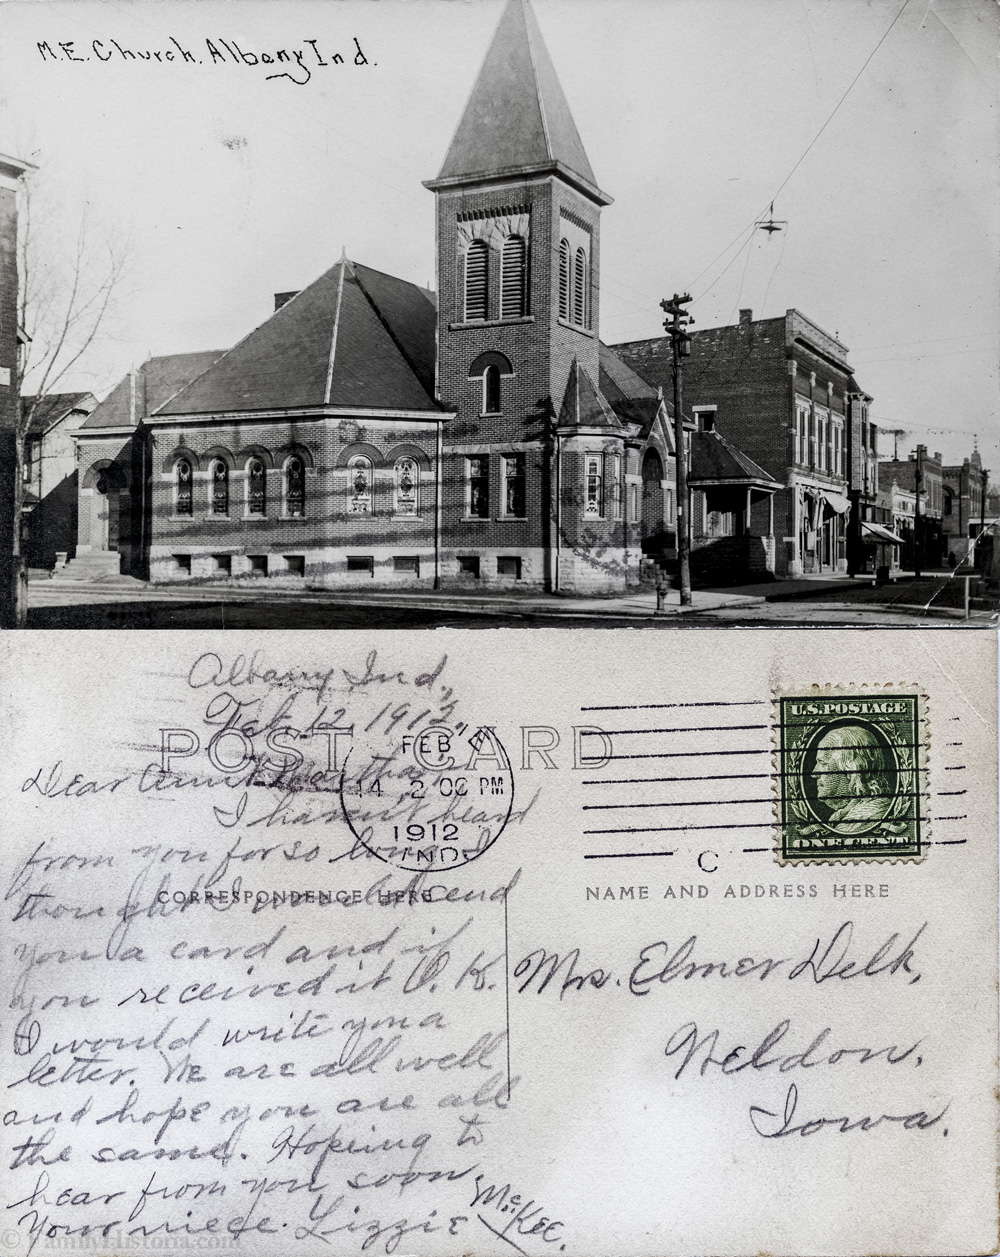 M.E. Church. Albany Ind.
Albany Ind,
Feb. 12, 1912,
POST CARD
FEB
14 2 00 PM
1912
IND
U.S. POSTAGE
ONE CENT
C
Dear Aunt Martha,
I haven't heard
from you for so long I
thought I would send
you a card and if
you received it O.K.
I would write you a
letter. We are all well
and hope you are all
the same. Hoping to
hear from you soon
Your niece. Lizzie McKee.
CORRESPONDENCE HERE
NAME AND ADDRESS HERE
Mrs. Elmer Delk,
Weldon,
Iowa.
© FamilyHistoria.com